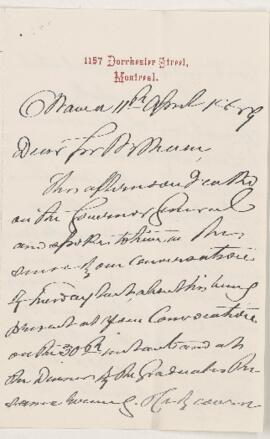 1157 Dorchester Street,
Montreal.
Ottawa 11th April 1889
Dear Sir William,
This afternoon I called
on the Governor General
and spoke to him in the
sense of your conversation
of Tuesday last about his being
present at your Convocation
on the 30th instant and at
the Dinner of the Graduates the
same evening. He